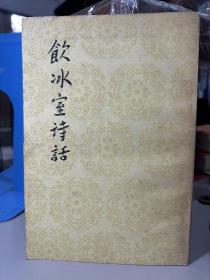 飲冰室诗話